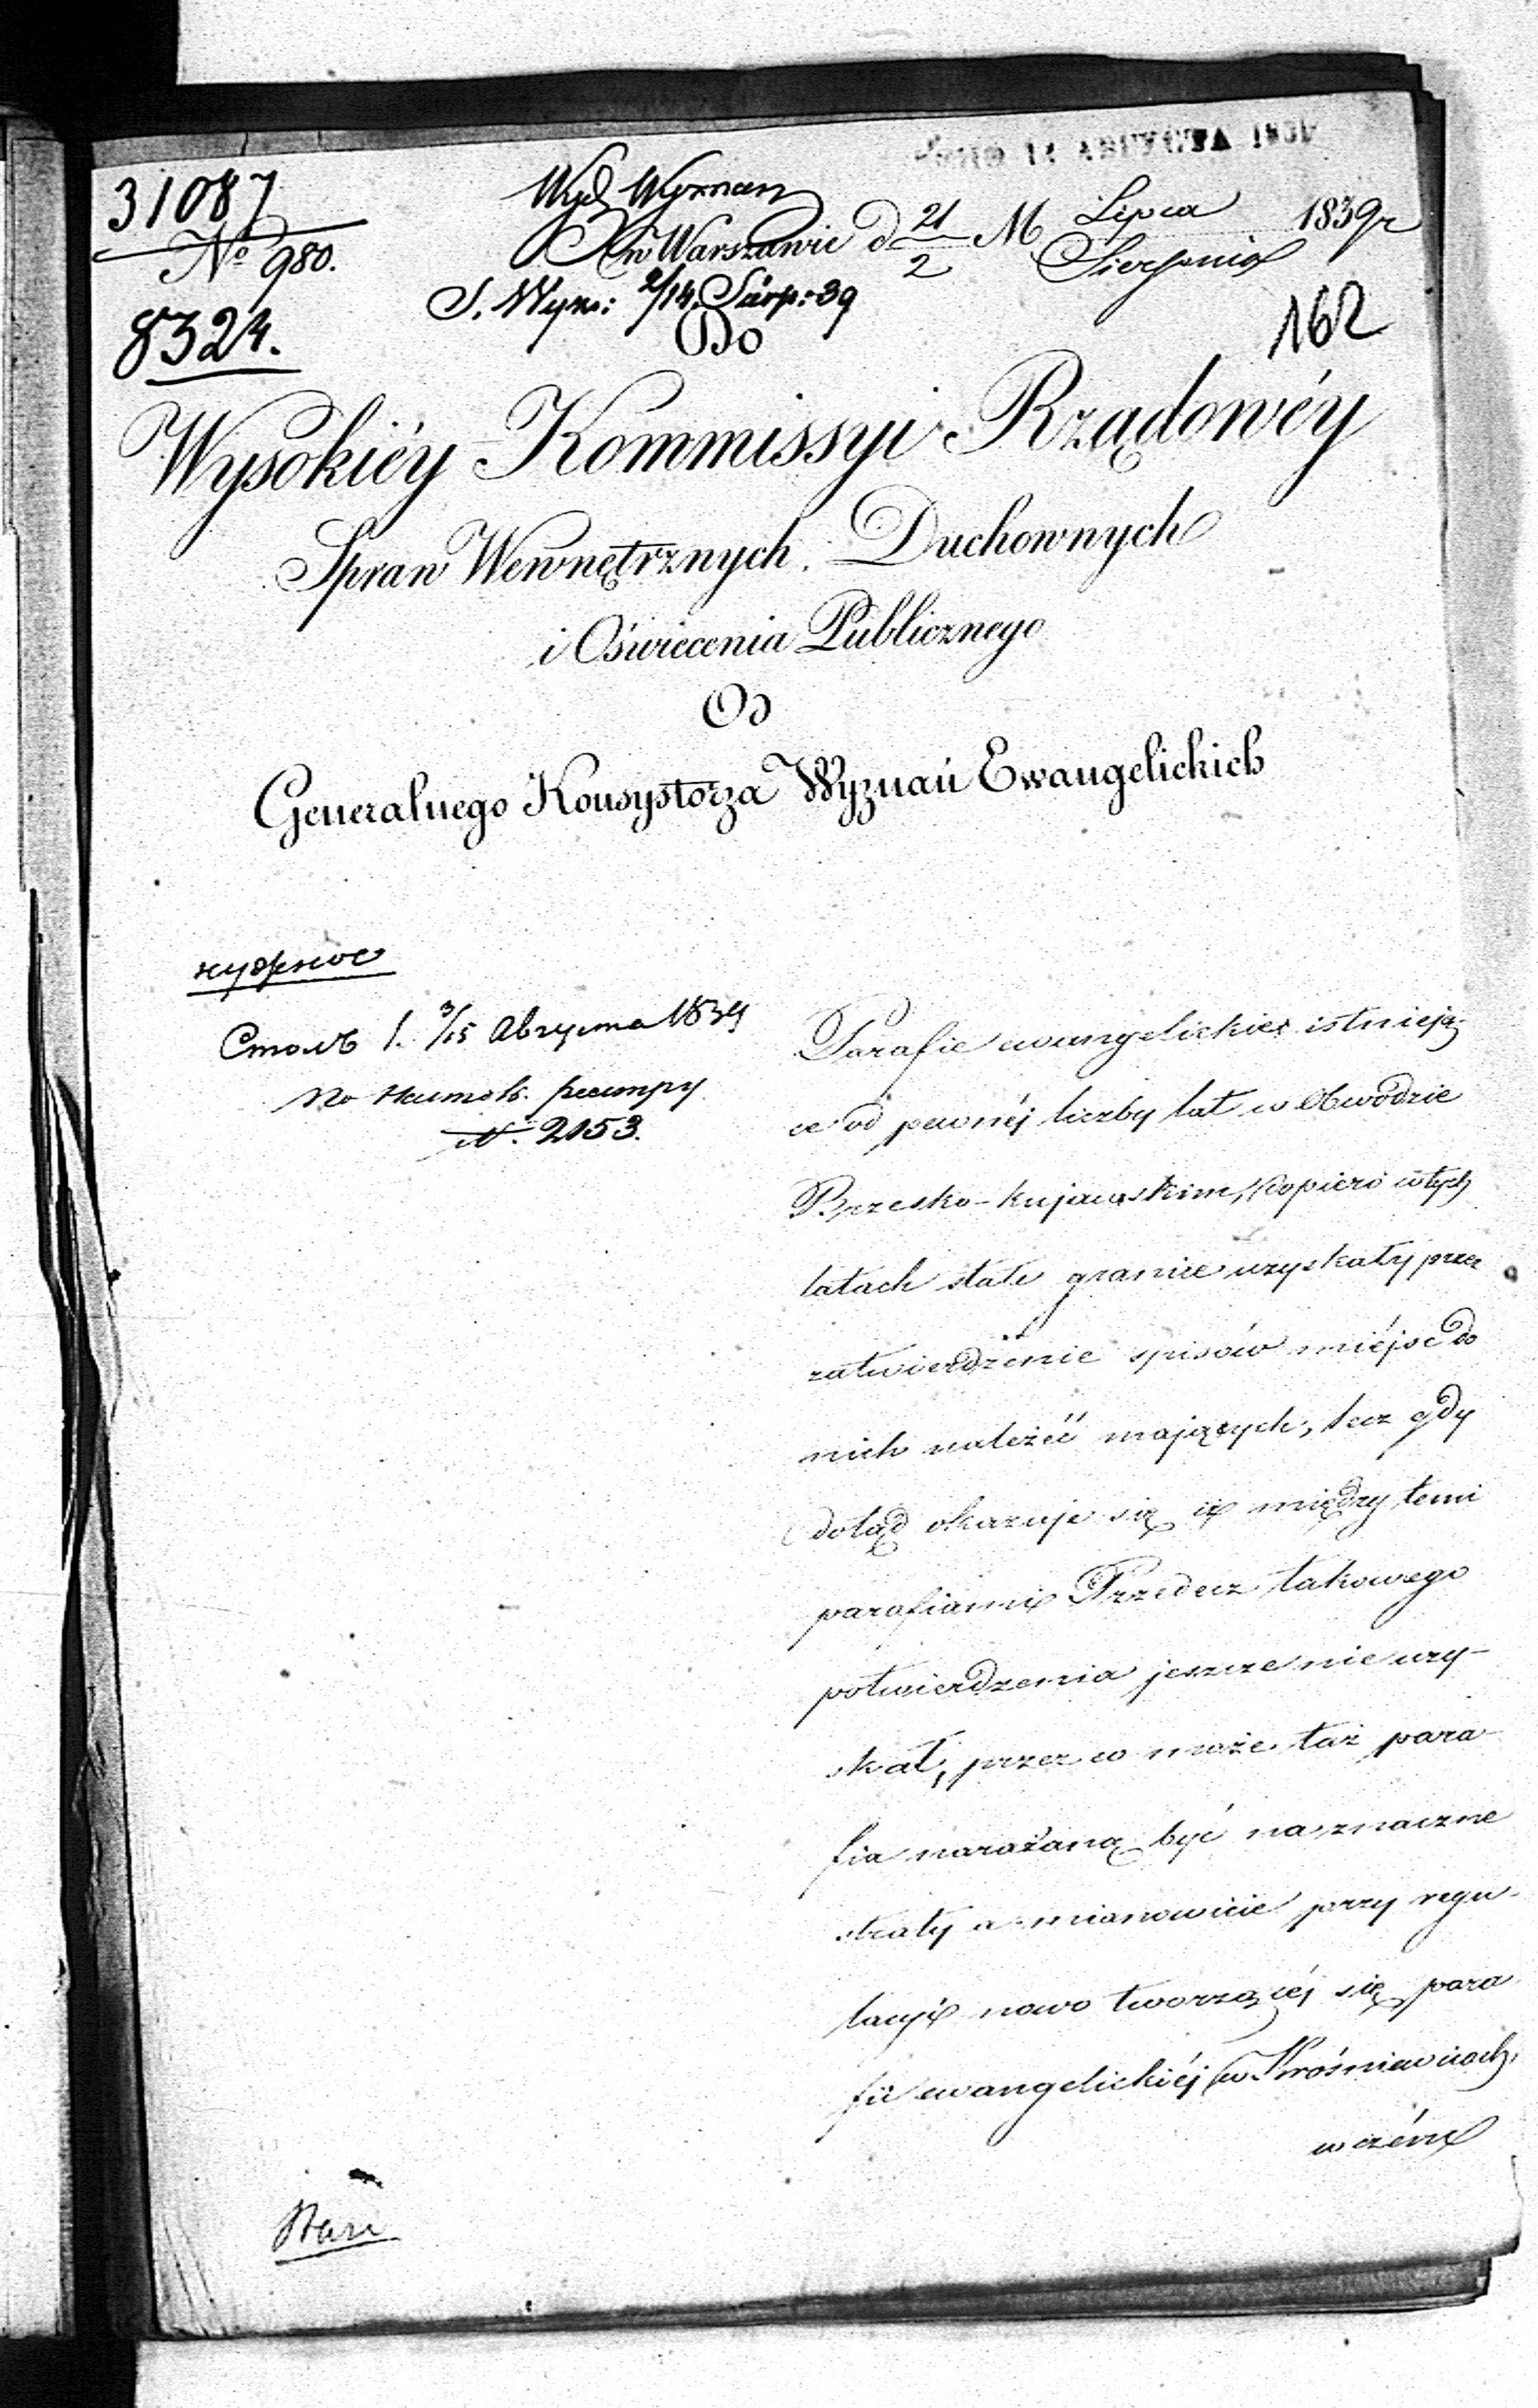 14 АВГУСТА 1839
31087
Wyd Wyznań
w Warszawie d 21/2 M Lipca/Sierpnia 1839 r
№ 980.
S. Wyzn: 2/14 Sierp: 39
8324.
162
Do
Wysokiéy Kommissyi Rządowéy
Spraw Wewnętrznych, Duchownych
i Oświecenia Publicznego
Od
Generalnego Konsystorza Wyznań Ewangelickich
нужное
Столъ 1. 3/15 Августа 1839
По
N. 2153.
Parafie ewangelickie istnieją-
ce od pewnéj liczby lat w Obwodzie
Brzesko-kujawskim, dopiero w tych
latach stałe granice uzyskały przez
zatwierdzenie spisów miéjsc do
nich należéć mających, lecz gdy
dotąd okazuje się iż między temi
parafiami Przedecz takowego
potwierdzenia jeszcze nie uzy-
skał, przez co może taż para-
fia narażaną być na znaczne
straty a mianowicie przy regu-
lacyi nowo tworzącéj się para-
fii ewangelickiéj w Krośniewicach,
w czém